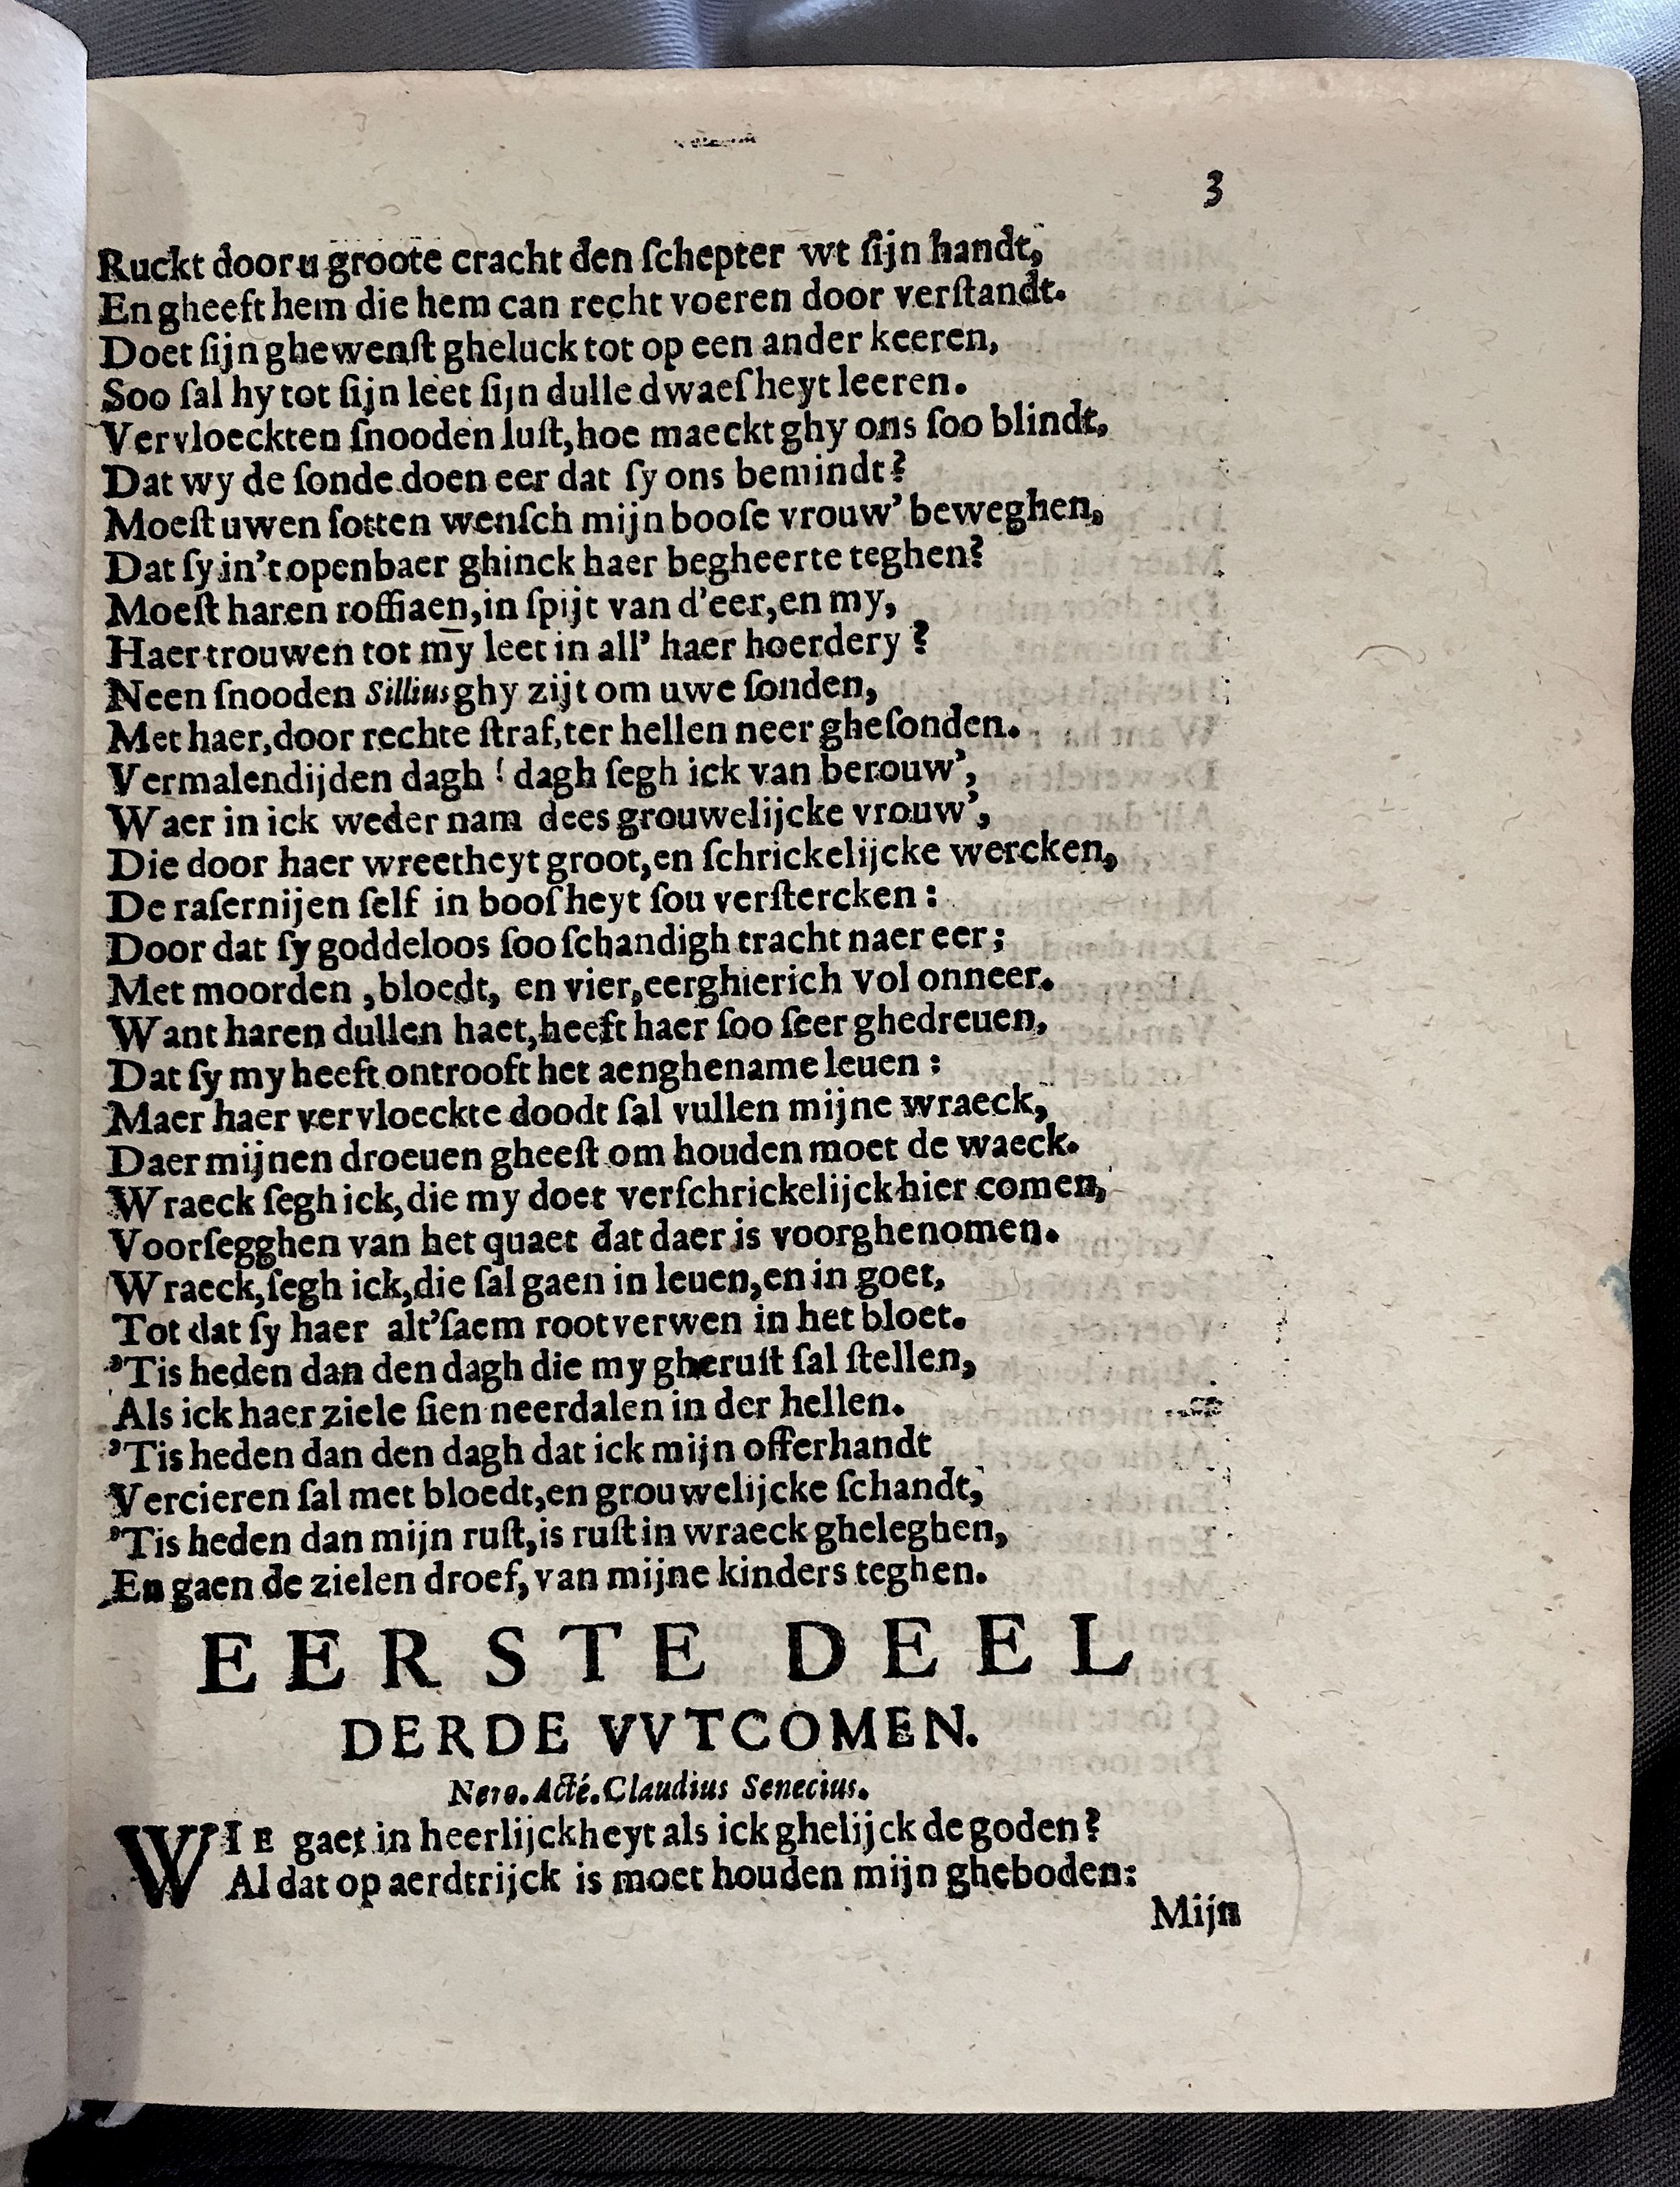 3
Ruckt door u groote cracht den ſchepter wt ſijn handt,
En gheeft hem die hem can recht voeren door verſtandt.
Doet ſijn ghewenſt gheluck tot op een ander keeren,
Soo ſal hy tot ſijn leet ſijn dulle dwaeſheyt leeren.
Vervloeckten ſnooden luſt, hoe maeckt ghy ons ſoo blindt,
Dat wy de ſonde doen eer dat ſy ons bemindt?
Moeſt uwen ſotten wenſch mijn booſe vrouw' beweghen,
Dat ſy in't openbaer ghinck haer begheerte teghen?
Moeſt haren roffiaen, in ſpijt van d'eer, en my,
Haer trouwen tot my̅ leet in all' haer hoerdery?
Neen ſnooden Sillius ghy zijt om uwe ſonden,
Met haer, door rechte ſtraf, ter hellen neer gheſonden.
Vermalendijden dagh! dagh ſegh ick van berouw',
Waer in ick weder nam dees grouwelijcke vrouw',
Die door haer wreetheyt groot, en ſchrickelijcke wercken,
De raſernijen ſelf in booſheyt ſou verſtercken:
Door dat ſy goddeloos ſoo ſchandigh tracht naer eer;
Met moorden, bloedt, en vier, eerghierich vol onneer.
Want haren dullen haet, heeft haer ſoo ſeer ghedreuen,
Dat ſy my heeft ontrooft het aenghename leuen:
Maer haer vervloeckte doodt ſal vullen mijne wraeck,
Daer mijnen droeuen gheeſt om houden moet de waeck.
Wraeck ſegh ick, die my doet verſchrickelijck hier comen,
Voorſegghen van het quaet dat daer is voorghenomen.
Wraeck, ſegh ick, die ſal gaen in leuen, en in goet,
Tot dat ſy haer alt'ſaem root verwen in het bloet.
'Tis heden dan den dagh die my gheruſt ſal ſtellen,
Als ick haer ziele ſien neerdalen in der hellen.
'Tis heden dan den dagh dat ick mijn offerhandt
Vercieren ſal met bloedt, en grouwelijcke ſchandt,
'Tis heden dan mijn ruſt, is ruſt in wraeck gheleghen,
En gaen de zielen droef, van mijne kinders teghen.
EERSTE DEEL
DERDE VVTCOMEN.
Nero. Acté. Claudius Senecius.
WIE gaet in heerlijckheyt als ick ghelijck de goden?
Al dat op aerdtrijck is moet houden mijn gheboden:
Mijn